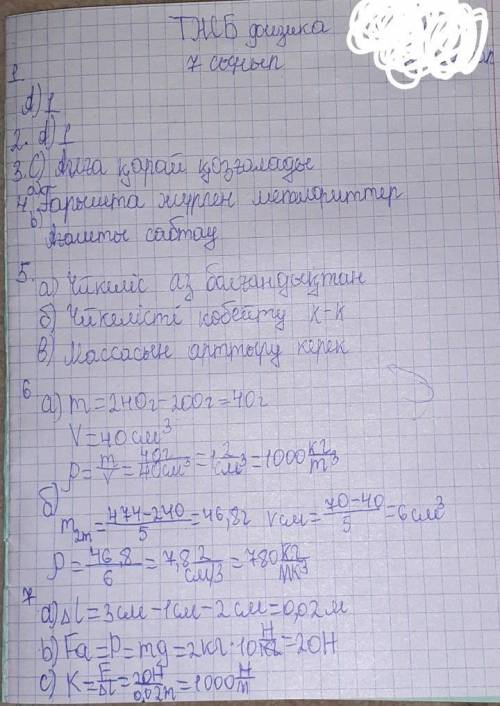 ТЖБ физика
7 сынып
1
d) 1
2. d) 1
3. C) Алға қарай қозғалады
4. Ғарышта жүрген метеориттер
b)
Ағашты сабтау
5. а) Үйкеліс аз болғандықтан
б) Үйкелісті көбейту к-к
в) Массасын арттыру керек
6 а) m=240г-200г=40г
V=40см³
ρ=m/V=40г/40см³=1г/см³=1000кг/m³
б)
m₂m=474-240/5=46,8г Vсм=70-40/5=6см³
ρ=46,8/6=7,8г/см/3=780кг/мк³
7 а) Δl=3см-1см-2см=0,02м
b) Fa=P=mg=2кг·10Н/кг=20Н
c) K=F/Δl=20Н/0,02m=1000Н/m